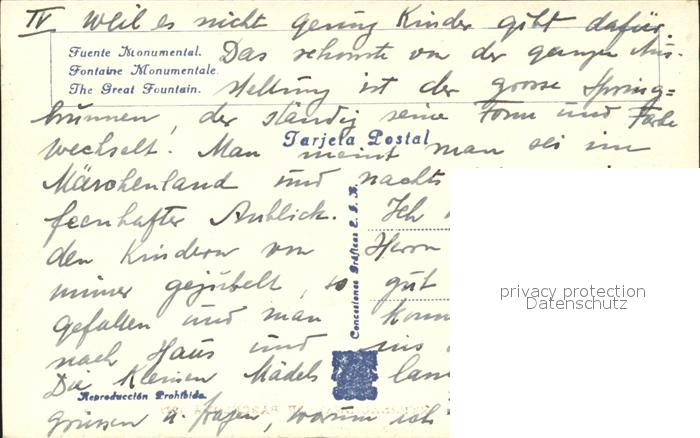 IV Weil es nicht genug Kinder gibt dafür.
Fuente Monumental.
Fontaine Monumentale.
The Great Fountain.
Das schonste von der ganzen Aus-
stellung ist der grosse Spring=
brunnen, der ständig seine Form und Farbe
Tarjeta Postal
wechselt. Man meint man sei im
Märchenland und nachts
feenhafter Anblick. Ich
den Kindern von Herrn
immer gejubelt, so gut
gefallen und man konn
nach Haus und ins
Die kleinen Mädels lan
grüssen u. fragen, warum ich
Concesiones Gráficas E. I. B.
Reproducción Prohibida
privacy protection
Datenschutz